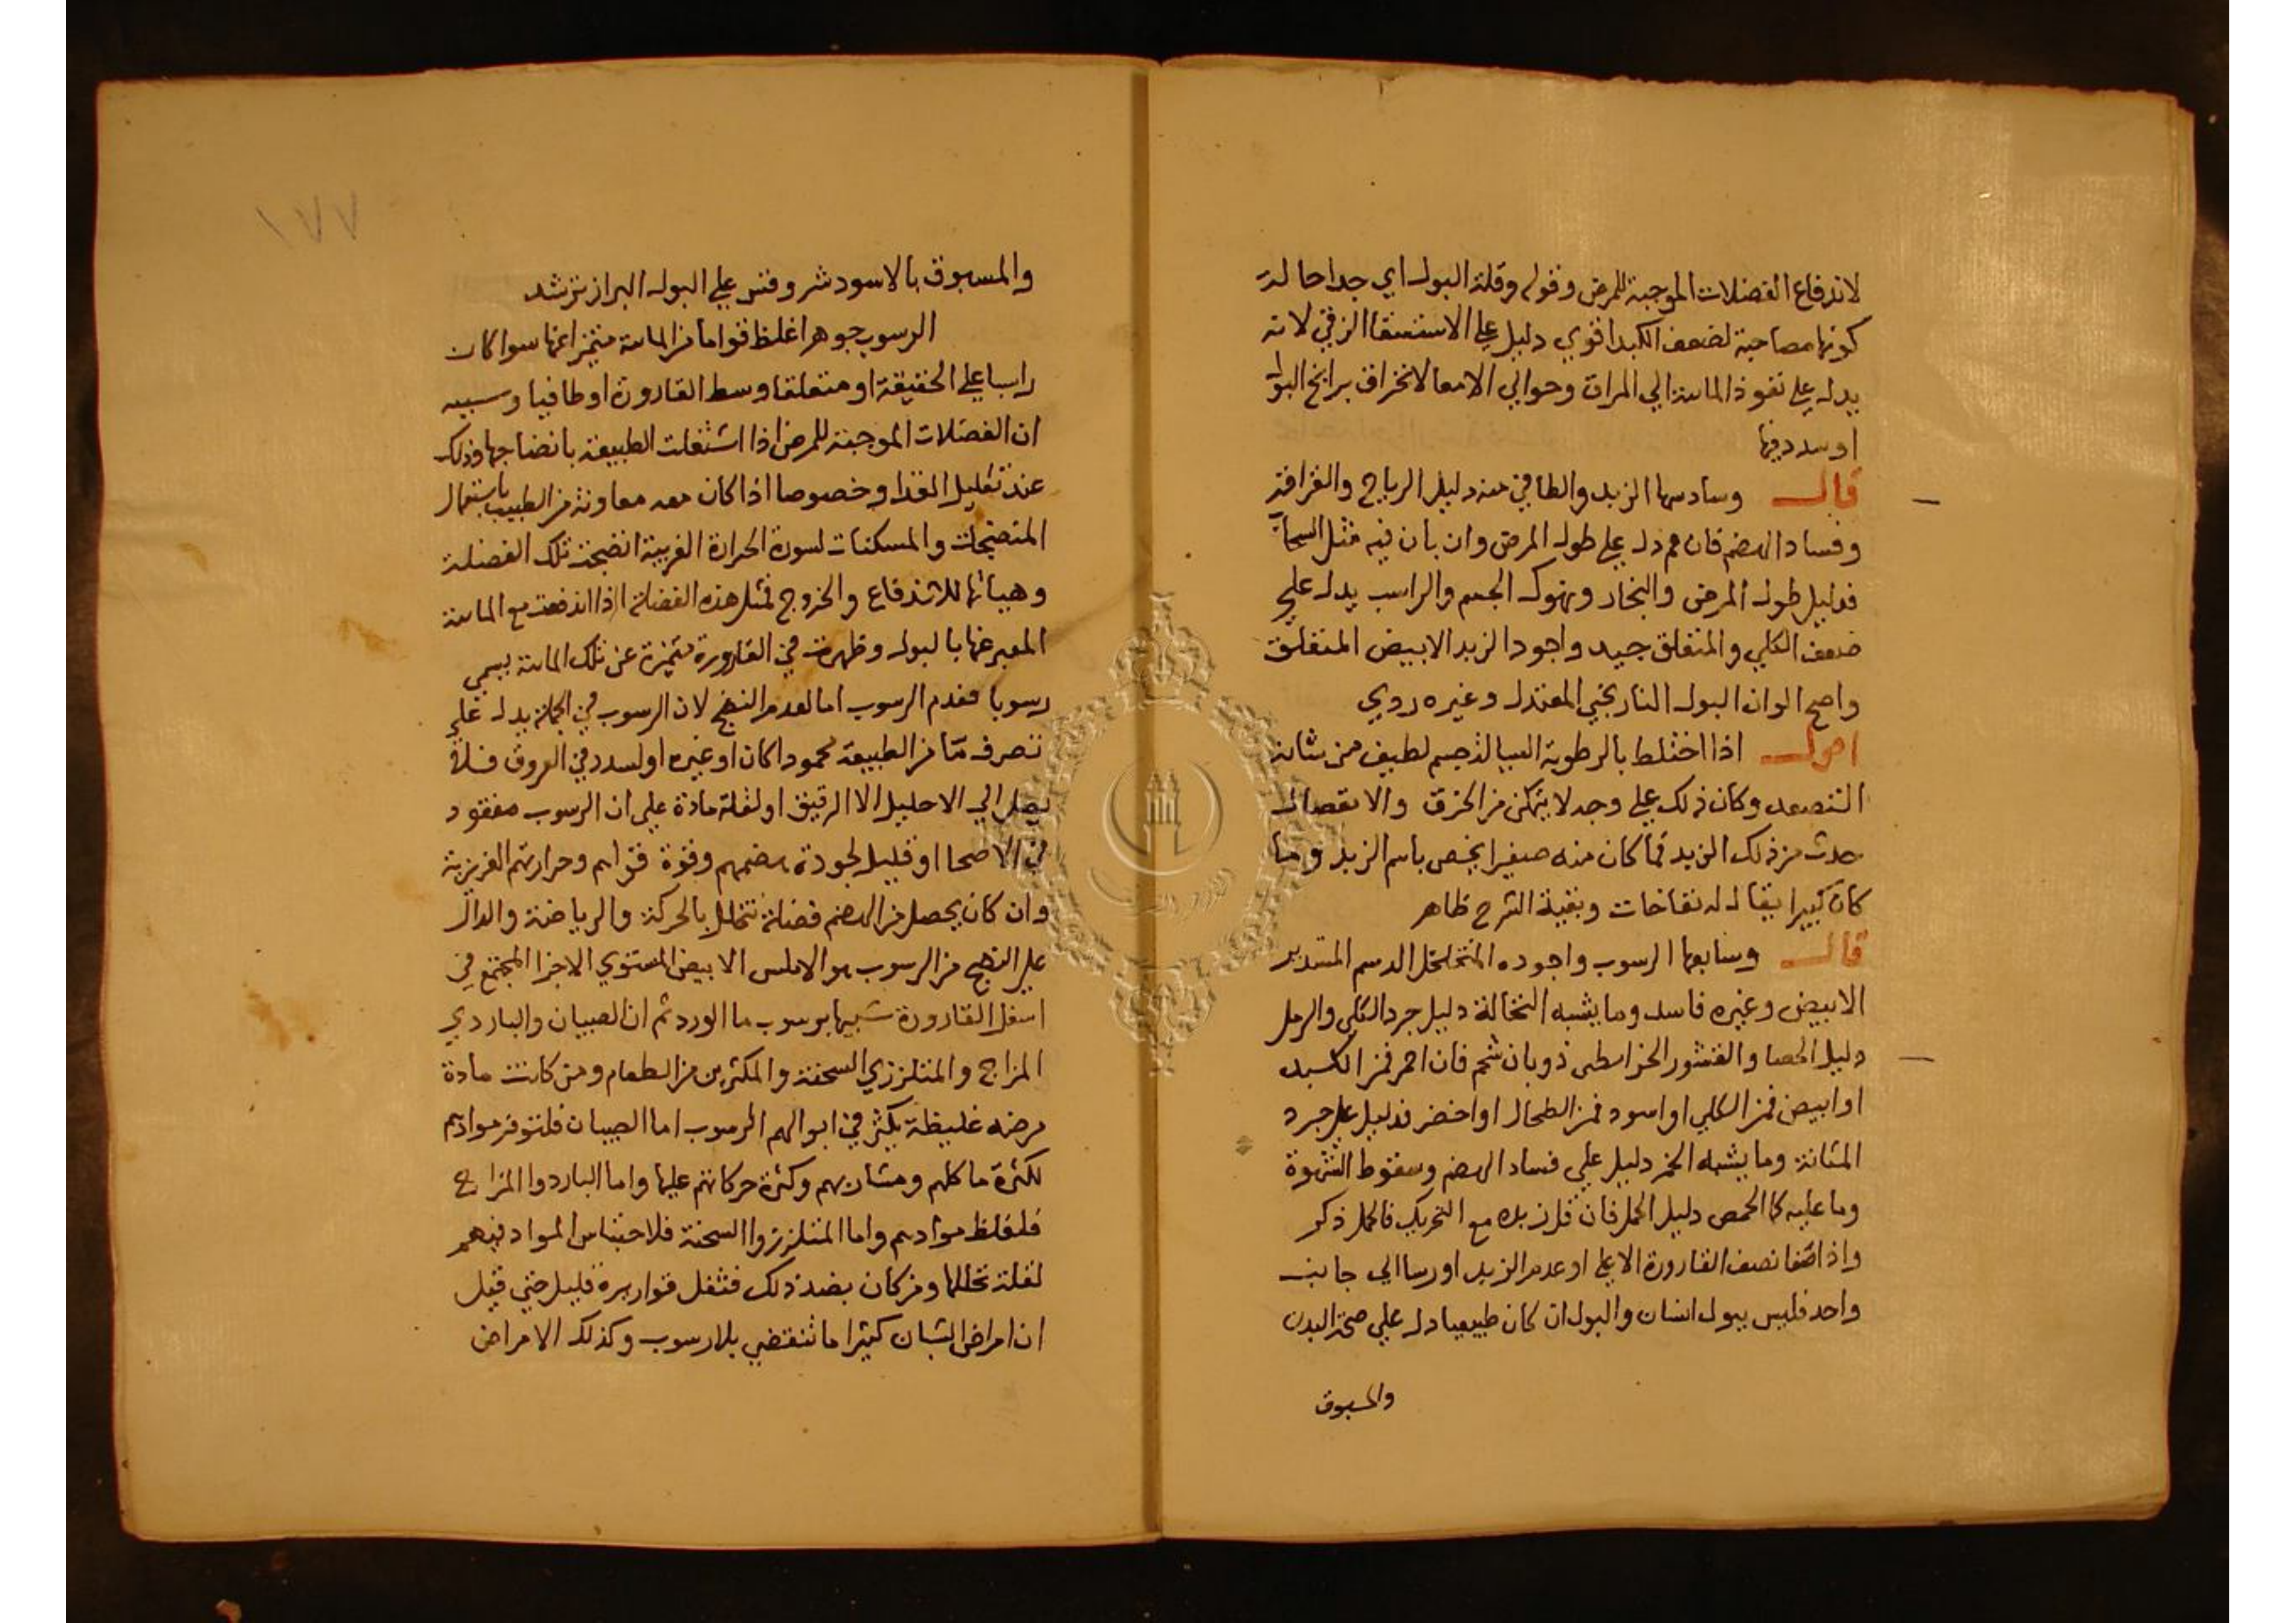 لاندفاع الفضلات الموجبة للمرض وقوله وقلة البول اي جدا حالة
كونها مصاحبة لضعف الكبد اقوي دليل علي الاستسقا الزقي لانه
يدل علي نفوذ المائية الي المراق وحوالي الامعا لانخراق برابخ البول
او سدد فيها
قال وسادسها الزبد والطافي منه دليل الرياح والقراقر
وفساد الهضم فان عم دل علي طول المرض وان بان فيه مثل السحاب
فدليل طول المرض والبخار ونهوك الجسم والراسب يدل علي
ضعف الكلي والمتعلق جيد واجود الزبد الابيض المتعلق
واصح الوان البول النارنجي المعتدل وغيره ردي
اقول اذا اختلط بالرطوبة السيالة جسم لطيف من شانه
التصعد وكان ذلك علي وجه لا يتمكن من الخرق والانفصال
حدث من ذلك الزبد فما كان منه صغيرا يخص باسم الزبد وما
كان كبيرا يقال له نفاخات وبقية الشرح ظاهر
قال وسابعها الرسوب واجوده المتخلخل الدسم المستدير
الابيض وغيره فاسد وما يشبه النخالة دليل جرد الكلي والرمل
دليل الحصا والقشور الخراطي ذوبان شحم فان احمر فمن الكبد
او ابيض فمن الكلي او اسود فمن الطحال او اخضر فدليل علي جرد
المثانة وما يشبه الخمر دليل علي فساد الهضم وسقوط الشهوة
وما عليه كالحمص دليل الحمل فان قل زبده مع التحريك فالحمل ذكر
واذا صفا نصف القارورة الاعلي او عدم الزبد او رسا الي جانب
واحد فليس ببول انسان والبول ان كان طبيعيا دل علي صحة البدن
والمسبوق
١٧٧
والمسبوق بالاسود شر وقس علي البول البراز ترشد
الرسوب جوهر اغلظ قواما من المائية متميز اعنها سوا كان
راسبا علي الحقيقة او متعلقا وسط القارورة او طافيا وسببه
ان الفضلات الموجبة للمرض اذا اشتغلت الطبيعة بانضاجها وذلك
عند تقليل الغذا وخصوصا اذا كان معه معاونة من الطبيب باستعمال
المنضجات والمسكنات لسورة الحرارة الغريبة انضجت تلك الفضلة
وهياتها للاندفاع والخروج فمثل هذه الفضلة اذا اندفعت مع المائية
المعبر عنها بالبول وظهرت في القارورة متميزة عن تلك المائية يسمي
رسوبا فعدم الرسوب اما لعدم النضج لان الرسوب في الجملة يدل علي
تصرف مّا من الطبيعة محمودا كان او غيره او لسدد في العروق فلا
يصل الي الاحليل الا الرقيق او لقلة مادة علي ان الرسوب مفقود
في الاصحا او قليل لجودة هضمهم وقوة قواهم وحرارتهم الغريزية
وان كان يحصل من الهضم فضلة تتحلل بالحركة والرياضة والدال
علي النضج من الرسوب هو الاملس الابيض المستوي الاجزا المجتمع في
اسفل القارورة شبيها برسوب ما الورد ثم ان الصبيان والباردي
المزاج والمتلززي السحنة والمكثرين من الطعام ومن كانت مادة
مرضه غليظة يكثر في ابوالهم الرسوب اما الصبيان فلتوفر موادهم
لكثرة ماكلهم ومشاربهم وكثرة حركاتهم عليها واما الباردوا المزاج
فلغلظ موادهم واما المتلززوا السحنة فلاحتباس المواد فيهم
لقلة تحللها ومن كان بضد ذلك فثفل قواريره قليل حتي قيل
ان امراض الشبان كثيرا ما تنقضي بلا رسوب وكذلك الامراض